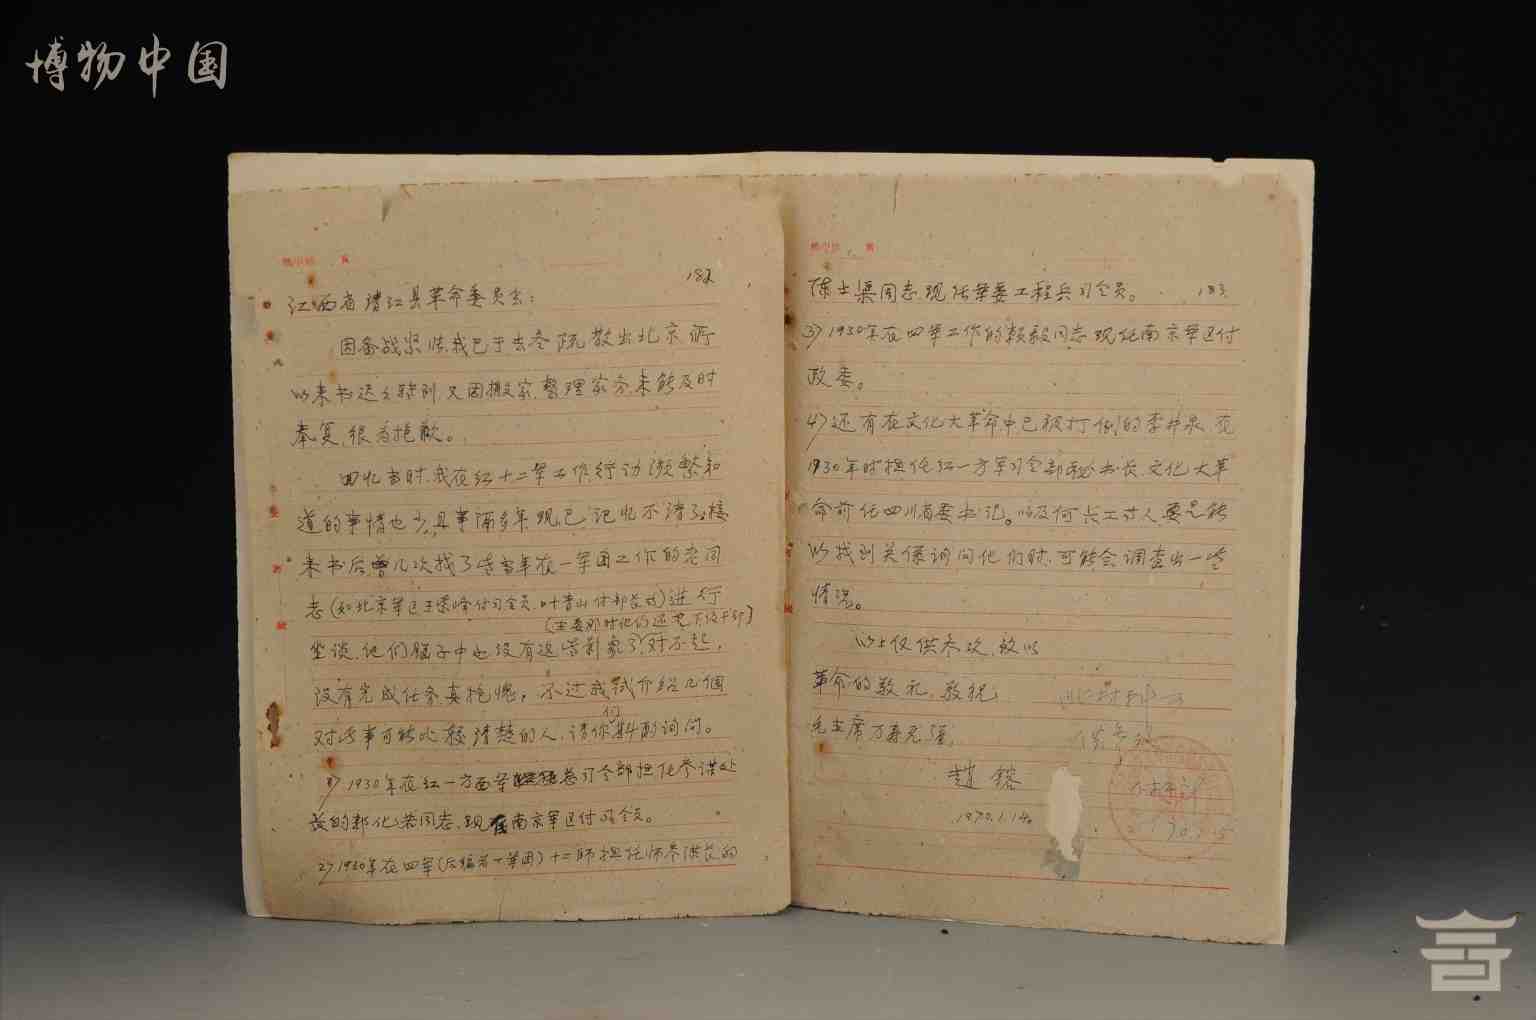 博物中国
182
江西省清江县革命委员会：
因备战紧张我已于去冬疏散出北京所
以来书迟之 又因搬家、整理家务未能及时
奉复，很为抱歉。
回忆当时，我在红十二军工作行动频繁知
道的事情也少，且事隔多年现已记忆不清了。接
来书后曾几次找了些当年在一军团工作的老同
志（如北京军区王紫峰付司令员、叶青山付部长等）进行
（主要那时他们还是下级干部）
坐谈，他们脑子中也没有这些影象了，对不起，
没有完成任务真抱愧，不过我试介绍几個
对此事可能比较清楚的人，请你们斟酌询问。
1）1930年在红一方面军总司令部担任参谋处
长的郭化若同志，现在南京军区付司令员。
2）1930年在四军（后编为一军团）十二师担任师参谋长的
陈士榘同志，现任军委工程兵司令员。
183
3）1930年在四军工作的赖毅同志，现任南京军区付
政委。
4）还有在文化大革命中已被打倒的李井泉，在
1930年时担任红一方军司令部秘书长，文化大革
命前任四川省委书记。以及何长工等人要是能
以找到关系询问他们时，可能会调查出一些
情况。
以上仅供参考，致以
革命的敬礼，敬祝
毛主席万寿无疆，
赵镕
1970.1.14.
此材料
供参考